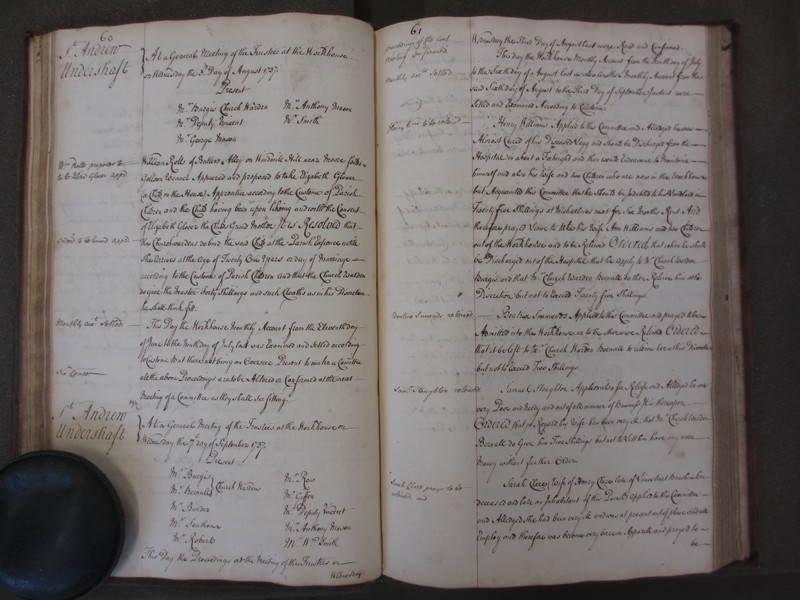 60
St. Andrew
Undershaft
At a General Meeting of the Trustees at the Workhouse
on Wednesday the 3d. Day of August 1737.
Present
Mr. Burges Church Warden Mr. Anthony Mason
Mr. Deputy Vincent Mr. Smith
Mr. George Mason
William Rolls of Butlers Alley on Windmill Hill near Moore fields
Appeared and proposed to take Elizabeth Glover
a Child in the House Apprentice according to the Custome of Parish
Children and the Child having been upon likeing and with the Consent
of Elizabeth Glover the Childs Grand Mother It is Resolved that
the Churchwardens do bind the said Child at the Parish Expence untill
She arrives at the age of Twenty One Years or day of Marriage
according to the Custome of Parish Children and that the Church Warden
do give the Master Forty Shillings and such Cloaths as in his Discretion
he shall think fit.
Monthly acct. Settled
This Day the Workhouse Monthly Account from the Eleventh day
of June to the Ninth day of July last was Examined and Settled according
to Custome But there not being an Present to make a Comittee
all the above Proceedings are to be Altered or Confirmed at the next
Meeting of a Committee as they shall See fitting
St. Andrew
Undershaft
At a General Meeting of the Trustees at the Workhouse on
Wednesday the 7th. Day of September 1737.
Present
Mr. Burges Mr. Ross
Mr. Bonnella Church Warden
Mr. Border Mr. Deputy Vincent
Mr. Mr. Anthony Mason
Mr. Roberts Mr. Wm. Smith
This Day the Proceedings at the Meeting of the Trustees on
Wednesday
61
proceedings of the last
Meeting confirmed
Monthly acct. Settled
Wednesday the Third Day of August last were Read and Confirmed.
This day the Workhouse Monthly Account from the Ninth day of July
to the Sixth day of August last as also another Monthly Account from the
said Sixth day of August to the Third Day of September Instant were
Settled and Examined According to Custome.
Henry Williams Applied to this Committee and Alledged he was
Almost Cured of his Diseased Legg and should be Discharged from the
Hospital in about a Fortnight and then would Endeavour to Maintain
himself and also his Wife and two Children who are now in the Workhouse
but Acquainted this Committee that he should be indebted to his Landlord in
Twenty five Shillings at Michaelmas next for Six Months Rent And
therefore prayed Leave to take his Wife Ann Williams and two Children
out of the Workhouse and to be Relieved Ordered that when he shall
be Discharged out of the Hospital that he apply to Mr. Church Warden
Burges and that Mr. Church Warden Bonnella do then Relieve him at his
Discretion but not to Exceed Twenty five Shillings.
Applied to this Committee and prayed to be
Admitted into the Workhouse or to be otherwise Relieved Ordered
that it be left to Mr. Church Warden Bonnella to relieve her at his Discretion
but not to Exceed Five Shillings.
Saml. Stoughton relieved
Samuel Stoughton Applied also for Relief and Alledged he was
very Poor and needy and out of all manner of Business It is thereupon
Ordered that in Regard his Wife has been very ill that Mr. Church Warden
Bonnella do Give him Five Shillings but not to let him have any more
Money without further Order.
Sarah Clare prays to be
relieved
Sarah Clare Wife of Henry Clare late of
deceased and late an Inhabitant of this Parish applied to the Committee
and Alledged She had been very ill and was at present out of place and
Employ and therefore was become very bare in Apparell and prayed to
be